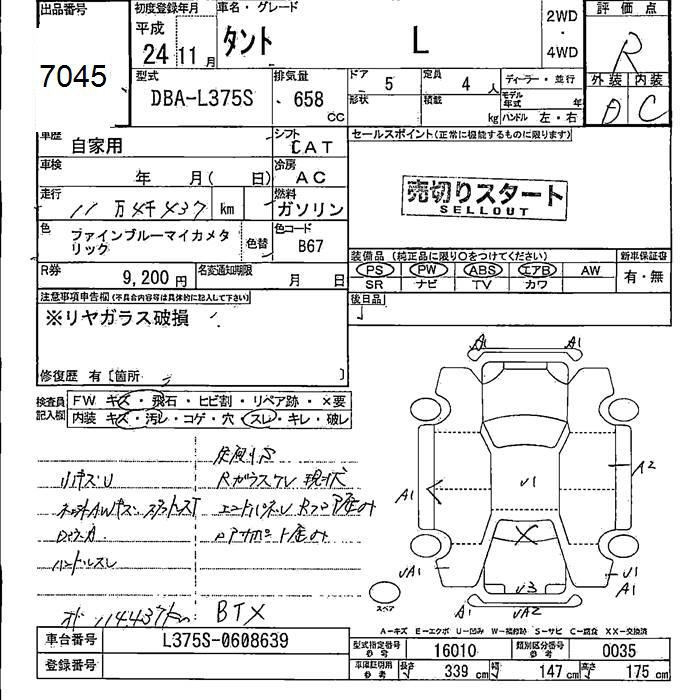 出品番号
7045
初度登録年月
平成
24年 11月
車名・グレード
タント L
2WD
・
4WD
評価点
R
外装 内装
D C
型式
DBA-L375S
排気量
658
cc
ドア 5
定員 4 人
形状
積載 kg
ディーラー・並行
モデル年式 年
ハンドル 左・右
車歴
自家用
シフト
CAT
車検
年 月( 日)
冷房
AC
走行
11万4千437 km
燃料
ガソリン
色
ファインブルーマイカメタリック
色替
色コード
B67
R券
9,200円
名変通知期限
月 日
セールスポイント(正常に機能するものに限ります)
売切りスタート
SELLOUT
装備品(純正品に限り〇をつけてください)
PS PW ABS エアB AW
SR ナビ TV カワ
新車保証書
有・無
後日品
注意事項申告欄(不具合内容等は具体的に記入して下さい)
※リヤガラス破損
修復歴 有〔箇所 〕
検査員記入欄
FW キズ・飛石・ヒビ割・リペア跡・×要
内装 キズ・汚レ・コゲ・穴・スレ・キレ・破レ
Rガラスワレ 現状
ハンドルスレ
114437km
BTX
A1 A1
U1
A2
A1
X
UA1
U3
U1
A1
A1 UA2
スペア
A-キズ E-エクボ U-凹み W-補修跡 S-サビ C-腐食 XX-交換済
車台番号
L375S-0608639
登録番号
型式指定番号
参考
16010
類別区分番号
参考
0035
車庫証明用
参考
長さ 339 cm 幅 147 cm 高さ 175 cm